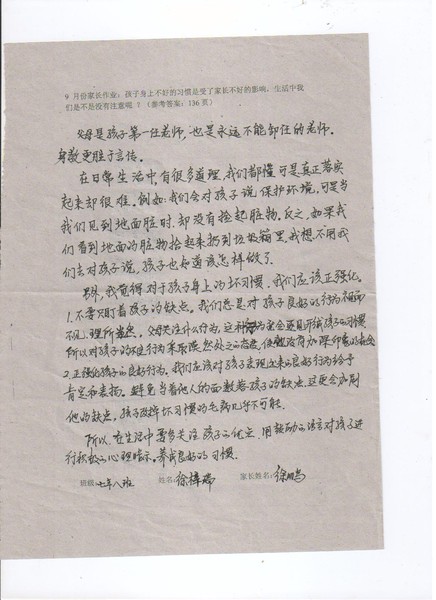 9 月份家长作业：孩子身上不好的习惯是受了家长不好的影响，生活中我
们是不是没有注意呢？（参考答案：136 页）
父母是孩子第一任老师，也是永远不能卸任的老师。
身教更胜于言传。
在日常生活中，有很多道理，我们都懂，可是真正落实
起来却很难。例如：我们会对孩子说，保护环境，可是当
我们见到地面脏时，却没有捡起脏物。反之，如果我
们看到地面的脏物拾起来扔到垃圾箱里，我想不用我
们去对孩子说，孩子也知道该怎样做了。
另外，我觉得对于孩子身上的坏习惯，我们应该正强化。
1.不要只盯着孩子的缺点。我们总是对孩子良好的行为视而
不见，理所当然，父母关注什么行为，这种行为就会
所以对孩子的不良行为采取
2.正强化孩子的良好行为。我们应该对孩子表现出来的良好行为给予
肯定和表扬。避免当着他人的面数落孩子的缺点，这更会加剧
他的缺点，孩子改掉坏习惯的毛病几乎不可能。
所以，在生活中要多关注孩子的优点，用鼓励的语言对孩子进
行积极的心理暗示。养成良好的习惯。
班级：七年八班 姓名：徐 家长姓名：徐鹏